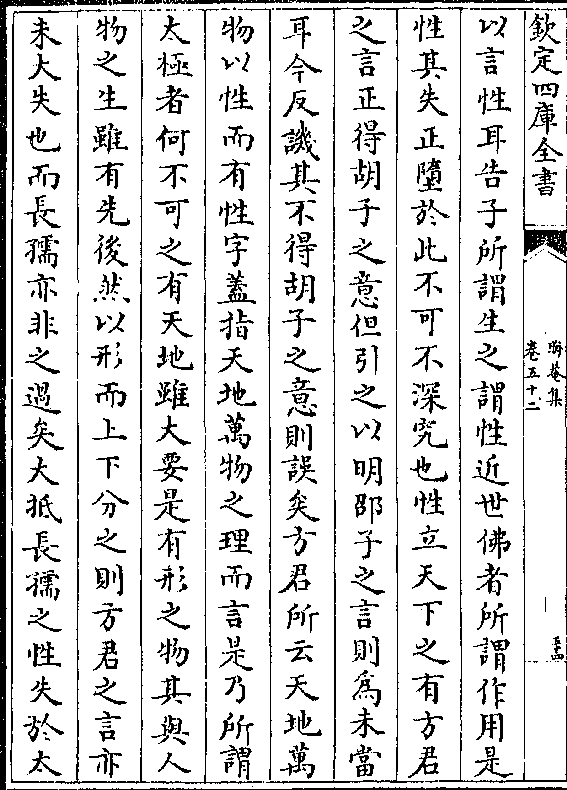 欽定四庫全書
晦菴集
卷五十二
五十四
以言性耳告子所謂生之謂性近世佛者所謂作用是
性其失正墮於此不可不深究也性立天下之有方君
之言正得胡子之意但引之以明邵子之言則為未當
耳今反譏其不得胡子之意則誤矣方君所云天地萬
物以性而有性字蓋指天地萬物之理而言是乃所謂
太極者何不可之有天地雖大要是有形之物其與人
物之生雖有先後然以形而上下分之則方君之言亦
未大失也而長孺亦非之過矣大抵長孺之性失於太